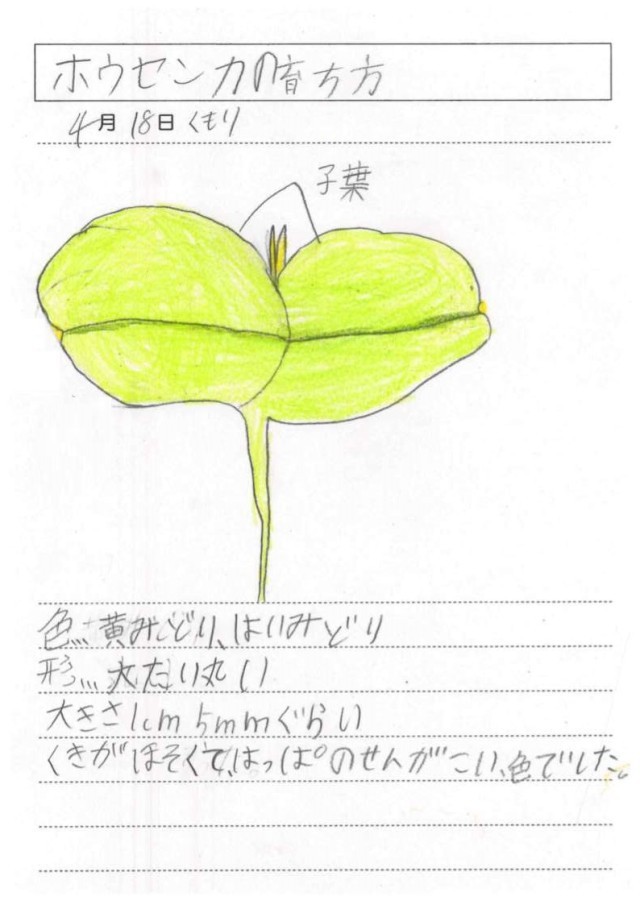 ホウセンカの育ち方
4月18日くもり
子葉
色…黄みどり、はいみどり
形…だ丸い
大きさ1cm5mmぐらい
くきがほそくて、はっぱのせんがこい、色でした。